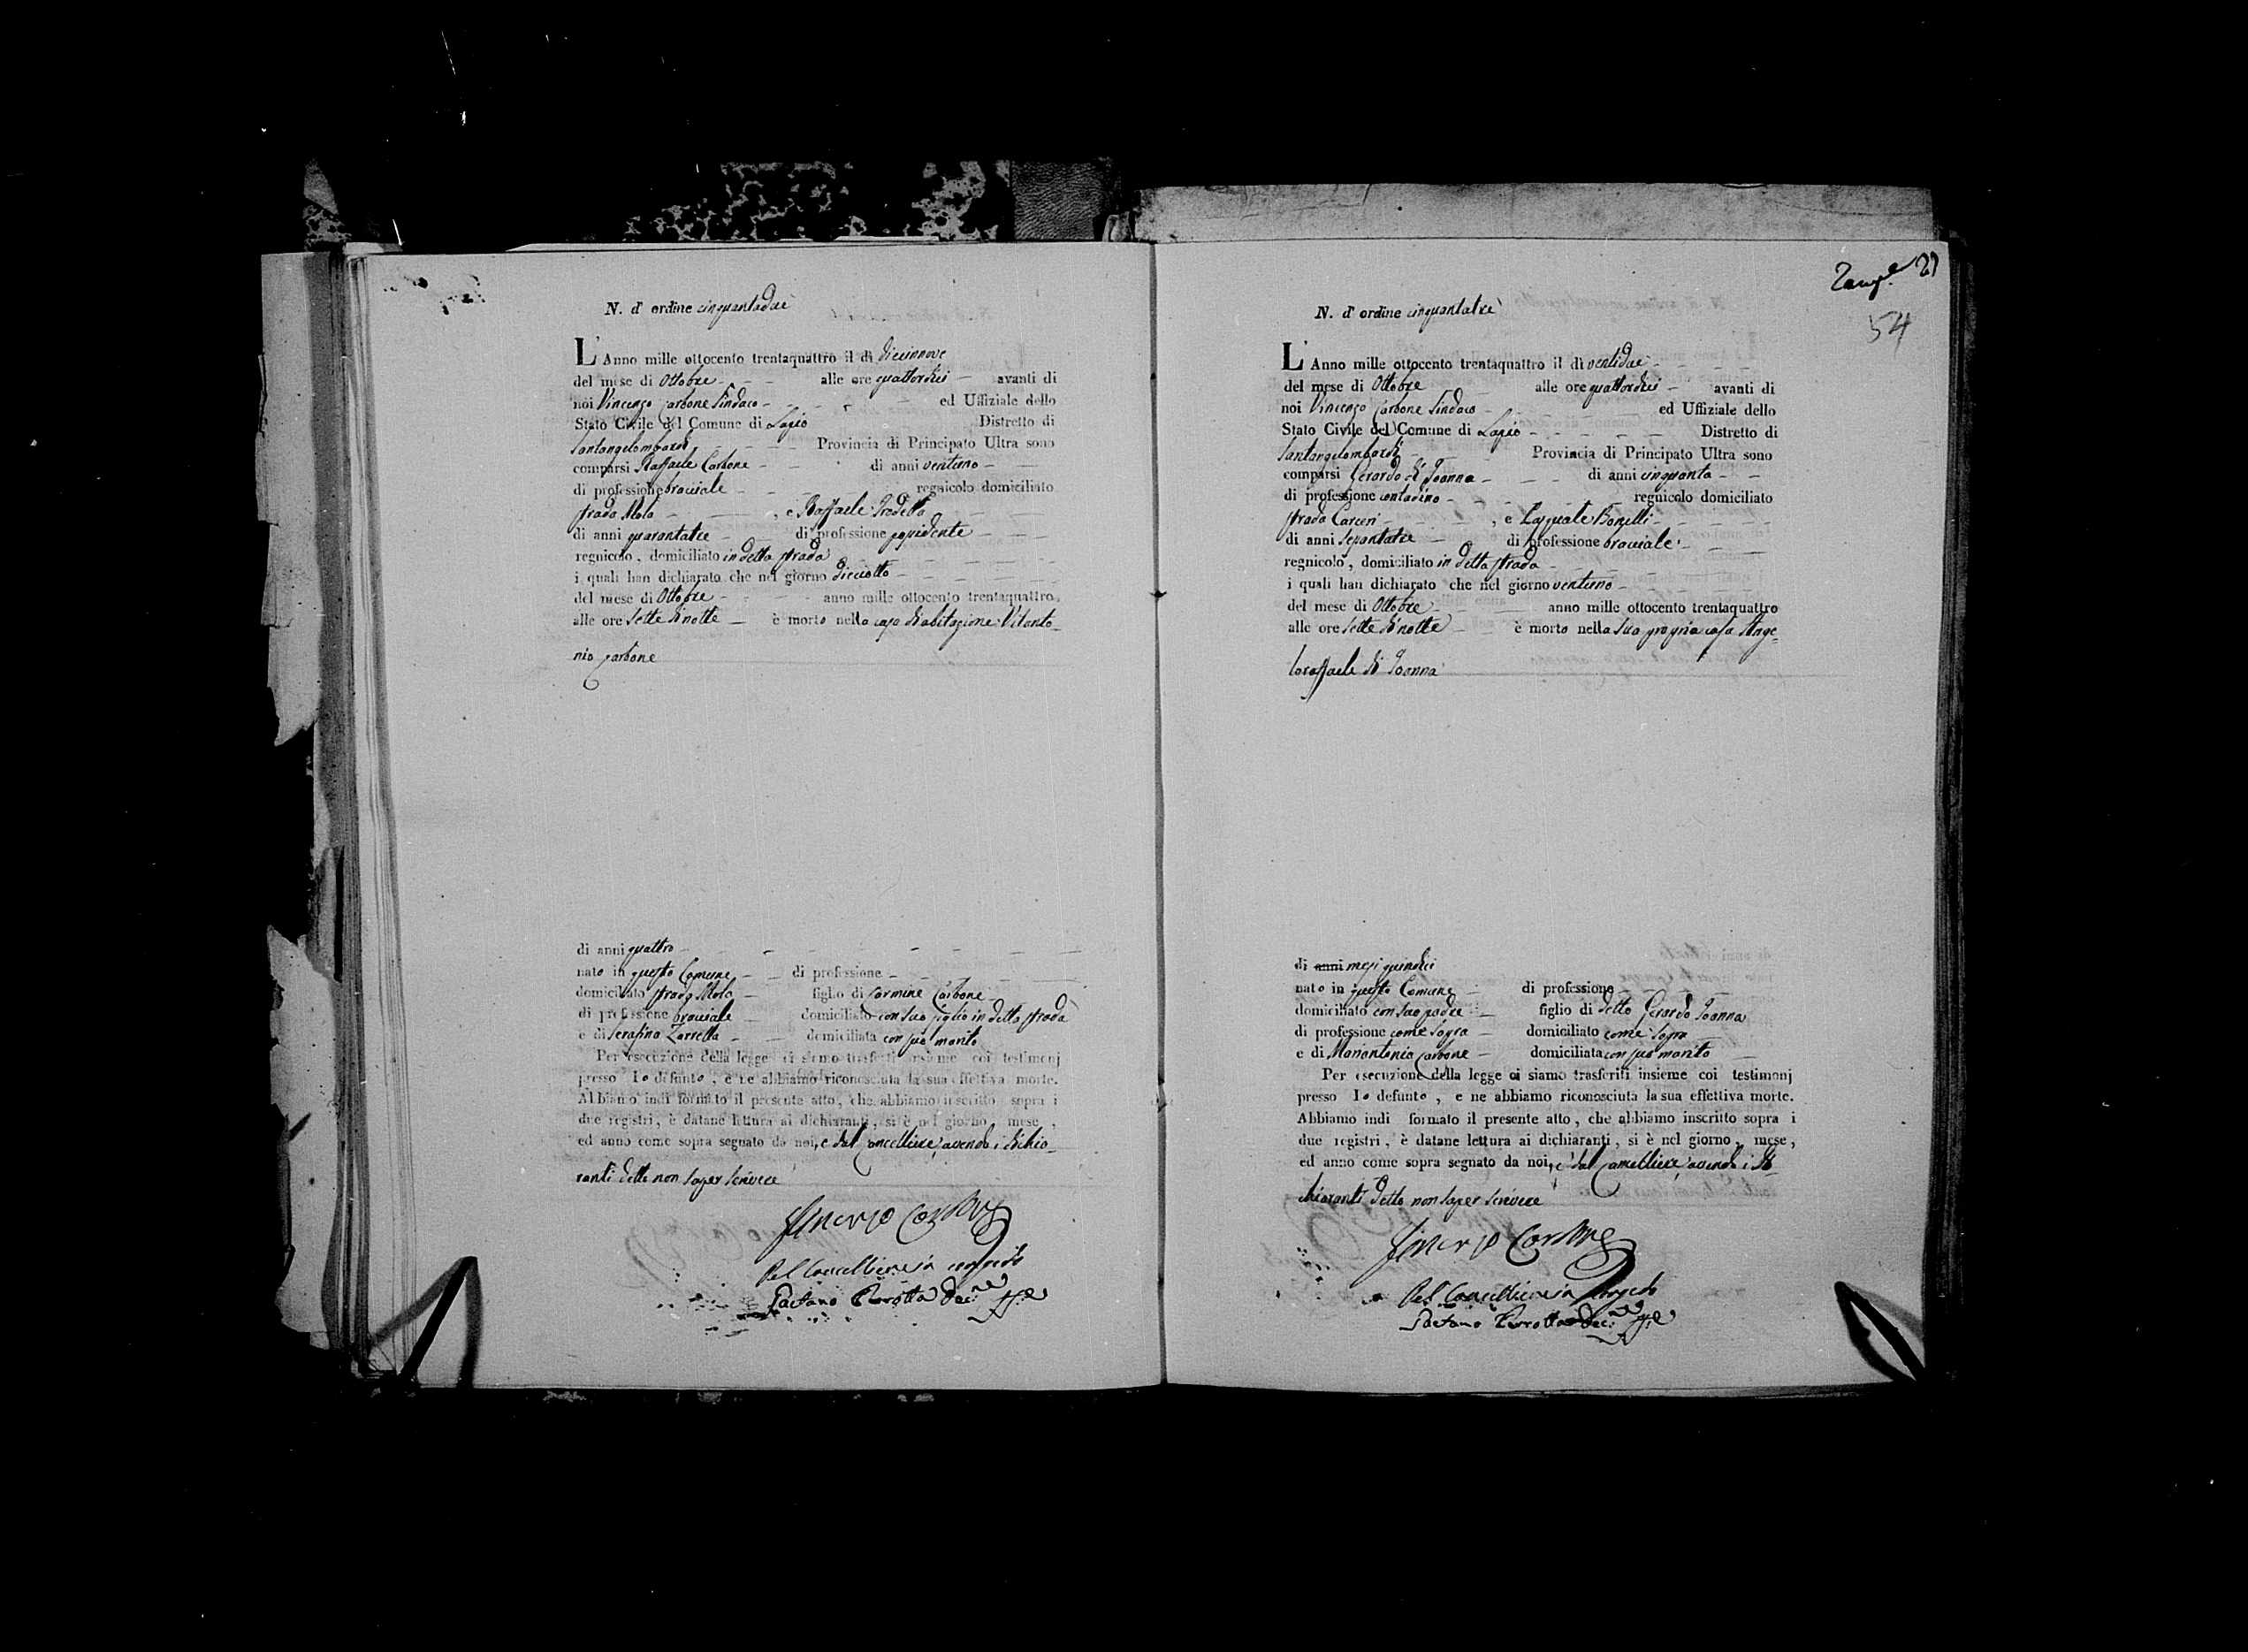 N. d' ordine cinquantadue
L' Anno mille ottocento trentaquattro il dì diecinnove
del mese di Ottobre alle ore quattordici avanti di
noi Vincenzo Carbone Sindaco ed Uffiziale dello
Stato Civile del Comune di Lapio Distretto di
Santangelombardi Provincia di Principato Ultra sono
comparsi Raffaele Carbone di anni ventuno
di professione bracciale regnicolo domiciliato
strada Mola , e Raffaele
di anni quarantatre di professione possidente
regnicolo, domiciliato in detta strada
i quali han dichiarato che nel giorno dieciotto
del mese di Ottobre anno mille ottocento trentaquattro
alle ore sette di notte è morto nella casa di abitazione Vitanto-
nio Carbone
di anni quattro
nato in questo Comune di professione
domiciliato strada Mola figlio di Carmine Carbone
di professione bracciale domiciliato con suo figlio in detta strada
e di Serafina Zarrella domiciliata con suo marito
Per esecuzione della legge ci siamo trasferiti insieme coi testimonj
presso lo defunto, e ne abbiamo riconosciuta la sua effettiva morte.
Abbiamo indi formato il presente atto, che abbiamo inscritto sopra i
due registri, è datane lettura ai dichiaranti, si è nel giorno, mese,
ed anno come sopra segnato da noi, e dal Cancelliere, avendo i dichia-
ranti detto non saper scrivere
Vincenzo Carbone
Pel Cancelliere in congedo
Gaetano Perrotta
27
54
N. d' ordine cinquantatre
L' Anno mille ottocento trentaquattro il dì ventidue
del mese di Ottobre alle ore quattordici avanti di
noi Vincenzo Carbone Sindaco ed Uffiziale dello
Stato Civile del Comune di Lapio Distretto di
Santangelombardi Provincia di Principato Ultra sono
comparsi Gerardo di Joanna di anni cinquanta
di professione contadino regnicolo domiciliato
strada Carceri , e Pasquale Bonelli
di anni sepantatre di professione bracciale
regnicolo, domiciliato in detta strada
i quali han dichiarato che nel giorno ventuno
del mese di Ottobre anno mille ottocento trentaquattro
alle ore sette di notte è morto nella sua propria casa Ange-
loraffaele di Joanna
di anni mesi quindici
nato in questo Comune di professione
domiciliato con suo padre figlio di detto Gerardo Joanna
di professione come sopra domiciliato come sopra
e di Mariantonia Carbone domiciliata con suo marito
Per esecuzione della legge ci siamo trasferiti insieme coi testimonj
presso lo defunto, e ne abbiamo riconosciuta la sua effettiva morte.
Abbiamo indi formato il presente atto, che abbiamo inscritto sopra i
due registri, è datane lettura ai dichiaranti, si è nel giorno, mese,
ed anno come sopra segnato da noi, e dal Cancelliere, avendo i di-
chiaranti detto non saper scrivere
Vincenzo Carbone
Pel Cancelliere in congedo
Gaetano Perrotta